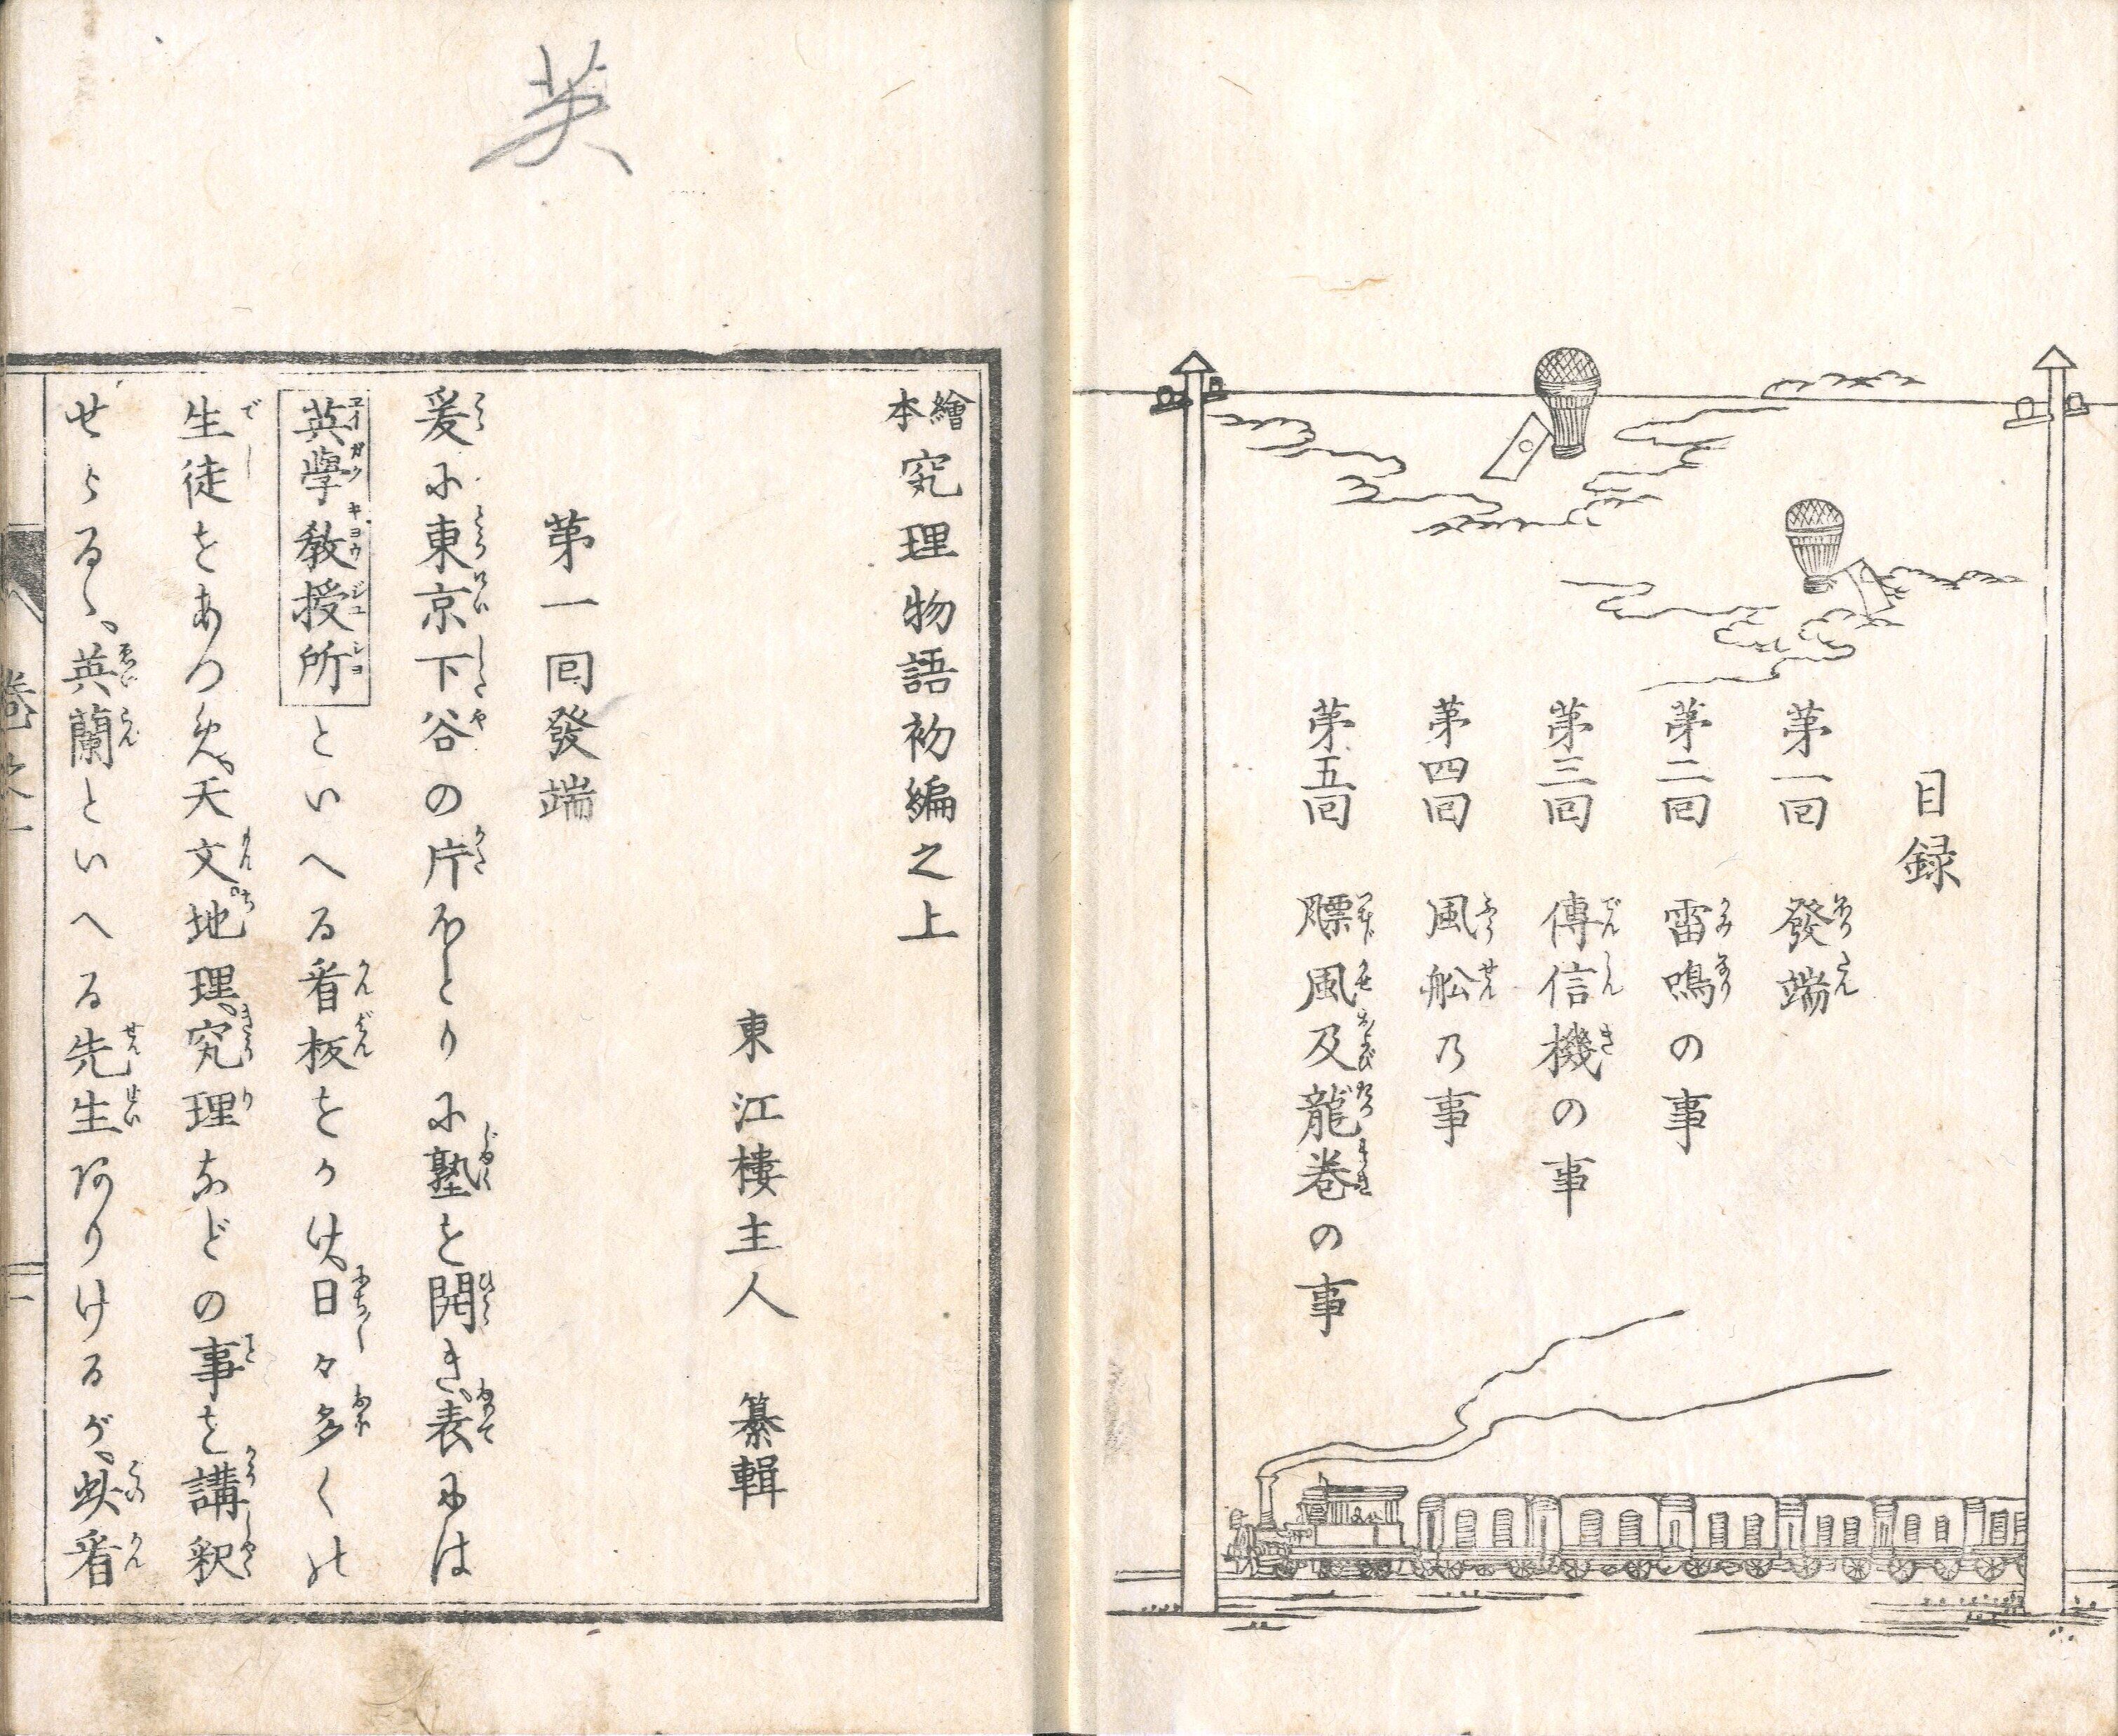 目録
第一回 發端
第二回 雷鳴の事
第三回 傳信機の事
第四回 風舩乃事
第五回 飃風及龍巻の事
英
繪本 究理物語初編之上
東江樓主人 纂輯
第一回發端
爰に東京下谷の片ほとりに塾を開き、表には
英學教授所といへる看板をかけ、日々多くの
生徒をあつめ、天文、地理、究理などの事を講釈
せらるゝ、英蘭といへる先生ありけるが、此看
巻之一
一